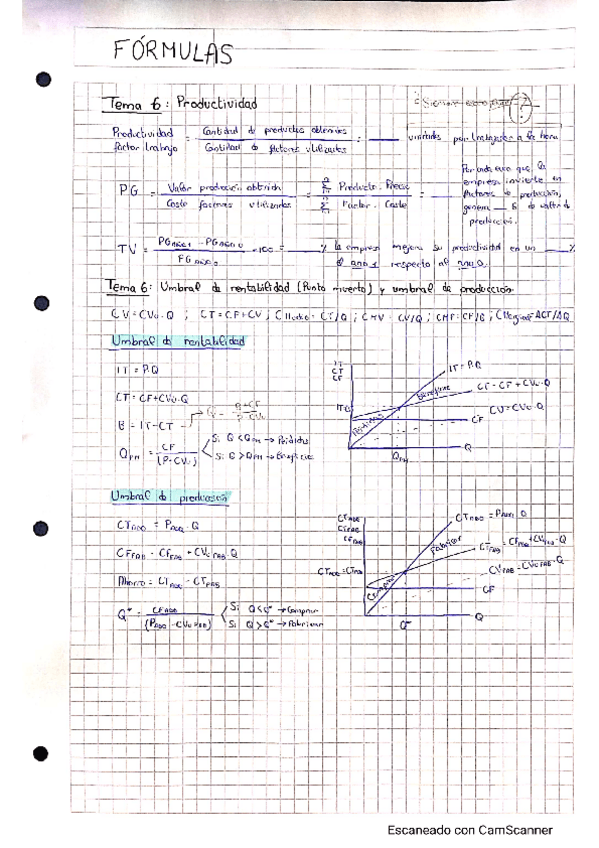 FÓRMULAS
Tema 6: Productividad
Productividad factor trabajo = Cantidad de productos obtenidos / Cantidad de factores utilizados = ____ unidades por trabajador a la hora
PG = Valor producción obtenida / Coste factores utilizados = Σ Producto · Precio / Σ Factor · Coste = ____ Por cada euro que la empresa invierte en factores de producción, genera __ € de valor de producción.
TV = PG año 1 - PG año 0 / PG año 0 · 100 = ____ % la empresa mejora su productividad en un ____ %
el año 1 respecto al año 0.
Tema 6: Umbral de rentabilidad (Punto muerto) y umbral de producción
CV = CVu · Q ; CT = CF + CV ; CMedio = CT/Q ; CMV = CV/Q ; CMF = CF/Q ; CMarginal = ΔCT/ΔQ
Umbral de rentabilidad
IT = P·Q
CT = CF + CVu · Q
B = IT - CT → Q = B + CF / P - CVu
Qpm = CF / (P - CVu)
Si Q < Qpm → Pérdidas
Si Q > Qpm → Beneficios
IT
CT
CF
IT = P·Q
Beneficios
CT = CF + CVu · Q
CV = CVu · Q
CF
Pérdidas
Qpm
Q
Umbral de producción
CT ADQ = P ADQ · Q
CT FAB = CF FAB + CVu FAB · Q
Ahorro = CT ADQ - CT FAB
Q* = CF FAB / (P ADQ - CVu FAB)
Si Q < Q* → Comprar
Si Q > Q* → Fabricar
CT ADQ
CT FAB
CF FAB
CT ADQ = P ADQ · Q
Fabricar
CT FAB = CF FAB + CVu FAB · Q
CV FAB = CVu FAB · Q
CF
CT ADQ = CT FAB
Comprar
Q*
Q
Escaneado con CamScanner